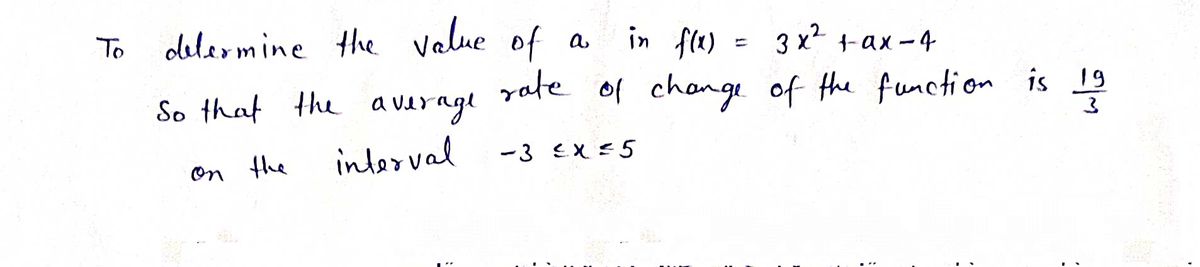 To determine the value of a in f(x) = 3x² + ax - 4
So that the average rate of change of the function is 19/3
on the interval -3 ≤ x ≤ 5